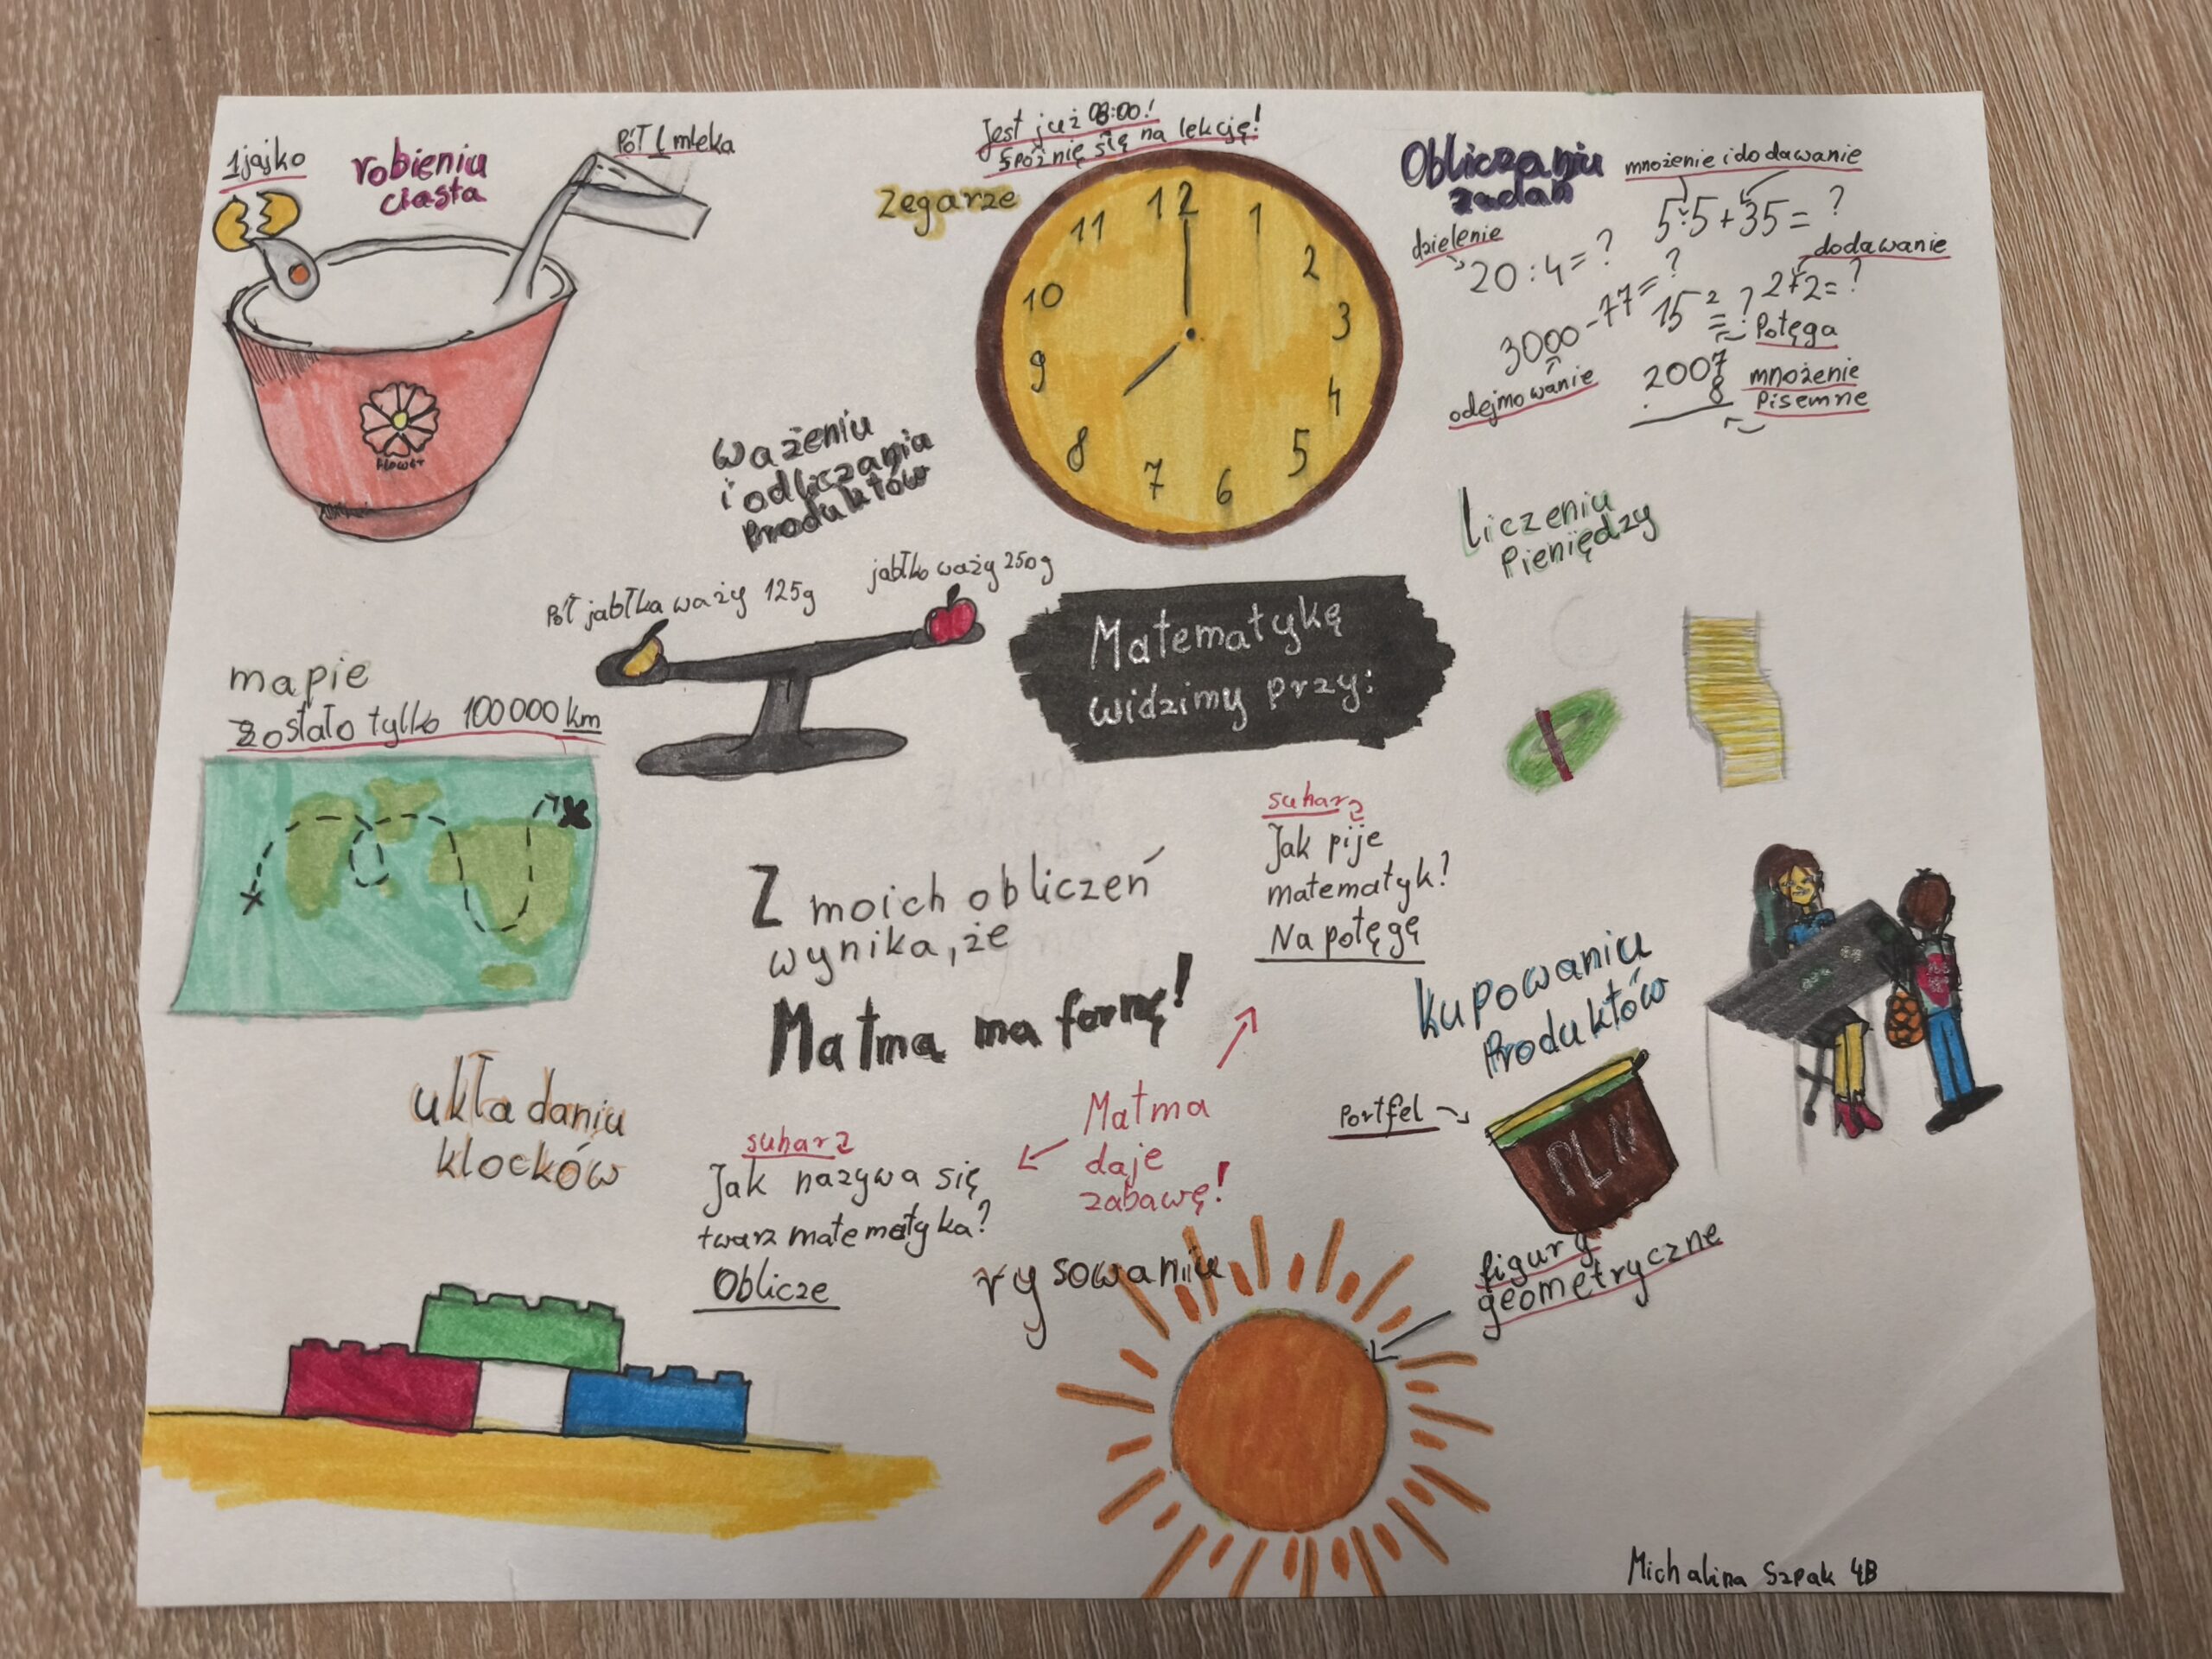 1 jajko
robieniu
ciasta
Pół l mleka
Flower
Jest już 08:00!
Spóźnię się na lekcję!
Zegarze
11 12 1
10 2
9 3
8 4
7 6 5
Obliczaniu
zadań
mnożenie i dodawanie
5·5+35=?
dzielenie
20:4=?
dodawanie
2+2=?
3000-77=?
odejmowanie
15²=?
Potęga
2007
· 8
mnożenie
Pisemne
ważeniu
i odliczania
Produktów
Pół jabłka waży 125g
jabłko waży 250g
Matematykę
widzimy przy:
liczeniu
Pieniędzy
mapie
Zostało tylko 100000 km
Z moich obliczeń
wynika, że
Matma ma formę!
suharz
Jak pije
matematyk?
Na potęgę
Kupowaniu
Produktów
Portfel
PLN
układaniu
klocków
Matma
daje
zabawę!
suharz
Jak nazywa się
twarz matematyka?
Oblicze
rysowaniu
figury
geometryczne
Michalina Szpak 4B